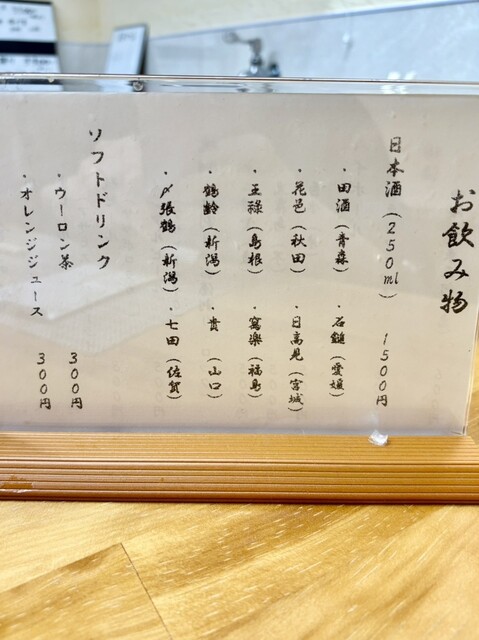 お飲み物
日本酒(250ml) 1500円
・田酒(青森) ・石鎚(愛媛)
・花邑(秋田) ・日高見(宮城)
・王禄(島根) ・寫楽(福島)
・鶴齢(新潟) ・貴(山口)
・〆張鶴(新潟) ・七田(佐賀)
ソフトドリンク
・ウーロン茶 300円
・オレンジジュース 300円